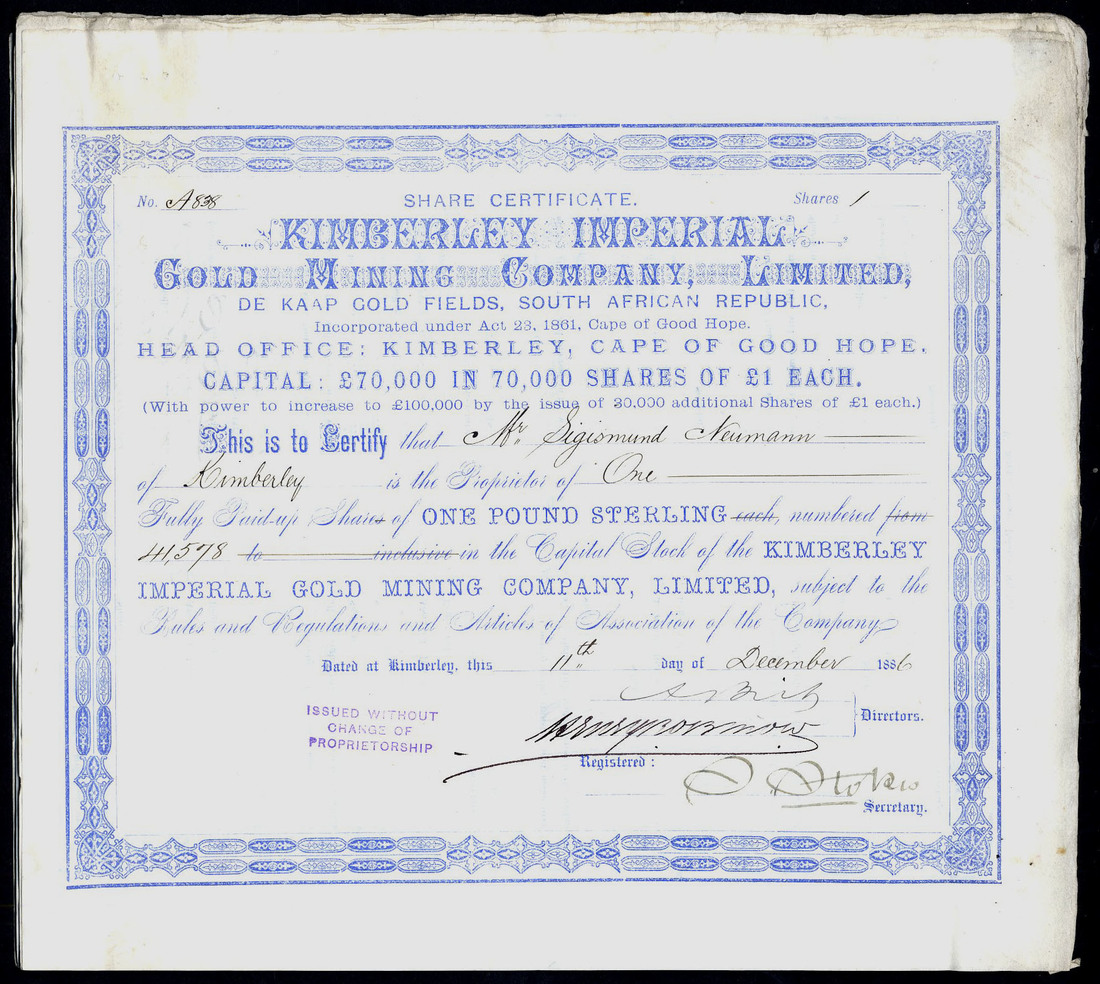 No. A838 SHARE CERTIFICATE. Shares 1
KIMBERLEY IMPERIAL
GOLD MINING COMPANY, LIMITED,
DE KAAP GOLD FIELDS, SOUTH AFRICAN REPUBLIC,
Incorporated under Act 23, 1861, Cape of Good Hope.
HEAD OFFICE: KIMBERLEY, CAPE OF GOOD HOPE.
CAPITAL: £70,000 IN 70,000 SHARES OF £1 EACH.
(With power to increase to £100,000 by the issue of 30.000 additional Shares of £1 each.)
This is to Certify that Mr. Sigismund Neumann
of Kimberley is the Proprietor of One
Fully Paid-up Shares of ONE POUND STERLING each, numbered from
41,578 to inclusive in the Capital Stock of the KIMBERLEY
IMPERIAL GOLD MINING COMPANY, LIMITED, subject to the
Rules and Regulations and Articles of Association of the Company
Dated at Kimberley, this 11th day of December 1886
Directors.
ISSUED WITHOUT
CHANGE OF
PROPRIETORSHIP
Registered:
Stokes
Secretary.